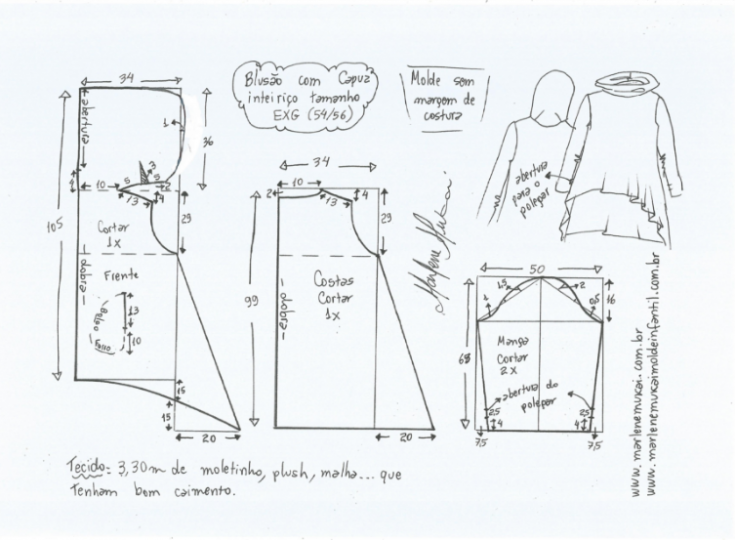 Blusão com Capuz
inteiriço tamanho
EXG (54/56)
Molde sem
margem de
costura
34
abertura
1
36
3
5
3
2
10
13
4
23
105
Cortar
1x
Frente
dobra
Bolso
Fazer
13
10
15
15
20
34
10
2
13
4
23
99
Costas
Cortar
1x
dobra
20
Marlene Mukai
abertura
para o
polegar
50
1,5
2
1
0,5
16
68
Manga
Cortar
2x
abertura do
polegar
2,5
4
2,5
4
7,5
7,5
www.marlenemukai.com.br
www.marlenemukaimoldeinfantil.com.br
Tecido: 3,30m de moletinho, plush, malha... que
Tenham bom caimento.